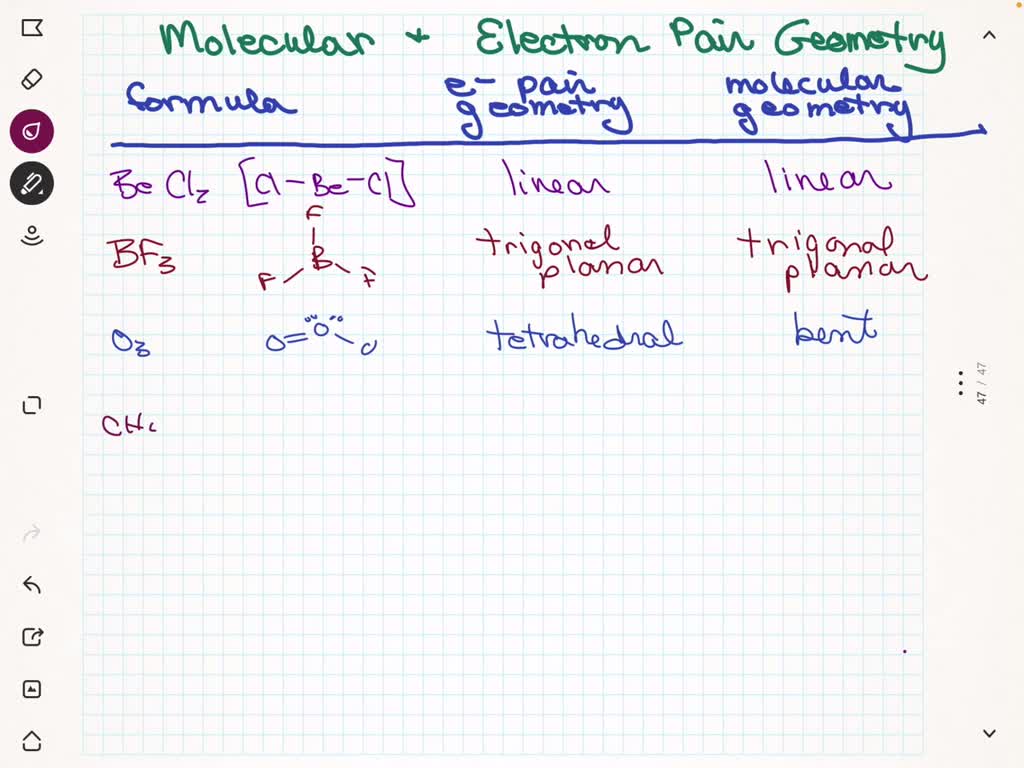 Molecular + Electron Pair Geometry
formula e- pair geometry molecular geometry
BeCl2 [Cl-Be-Cl] linear linear
F
BF3 B trigonal planar trigonal planar
F F
O3 O=O-O tetrahedral bent
47 / 47
CH